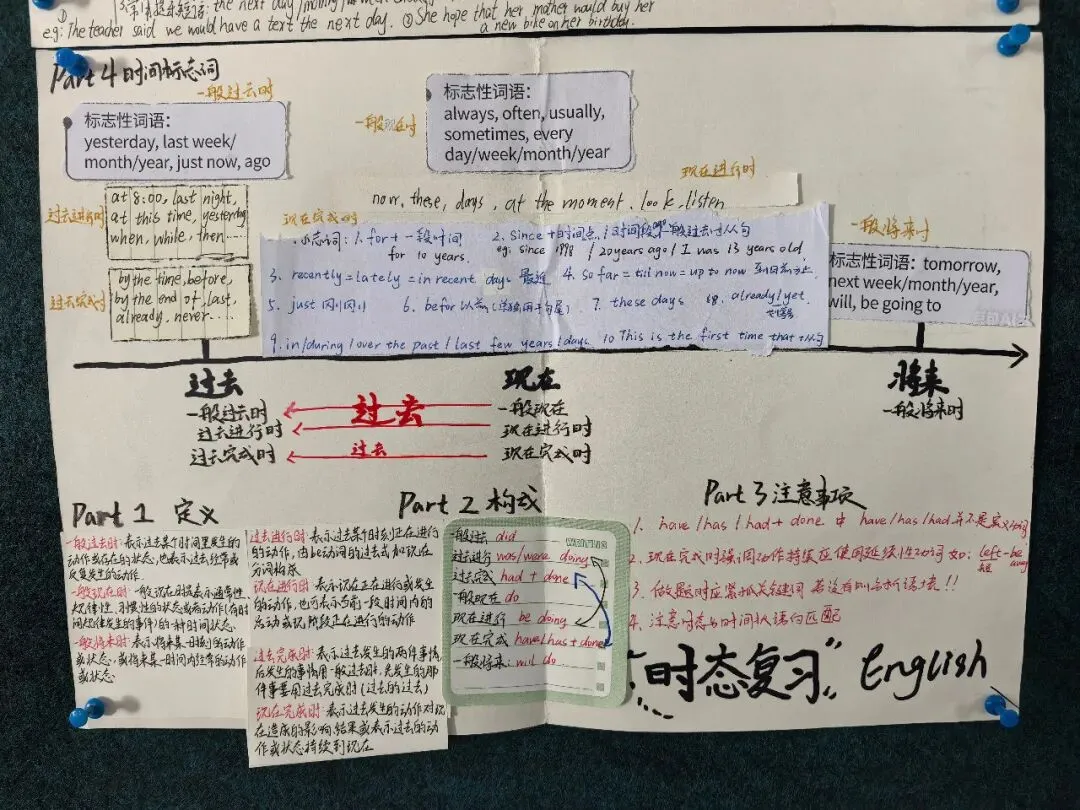 the next day
eg: The teacher said we would have a text the next day. ② She hope that her mother would buy her
a new bike on her birthday.
Part 4 时间标志词
一般过去时
标志性词语:
yesterday, last week/
month/year, just now, ago
一般现在时
标志性词语:
always, often, usually,
sometimes, every
day/week/month/year
过去进行时
at 8:00, last night,
at this time, yesterday
when, while, then....
过去完成时
by the time, before,
by the end of, last,
already, never....
现在进行时
now, these, days, at the moment, look, listen
现在完成时
标志词: 1. for + 一段时间
for 10 years.
2. Since +时间点 / 时间段ago 一般过去时从句
eg. since 1998 / 20years ago / I was 13 years old.
3. recently = lately = in recent days 最近
4. so far = till now = up to now 到目前为止
5. just 刚刚
6. befor 以前(单独用于句尾)
7. these days
8. already / yet
9. in/during / over the past / last few years / days
10 This is the first time that +从句
一般将来时
标志性词语: tomorrow,
next week/month/year,
will, be going to
过去
现在
将来
一般过去时
过去
一般现在
一般将来时
过去进行时
现在进行时
过去完成时
过去
现在完成时
Part 1 定义
一般过去时: 表示过去某个时间里发生的
动作或存在的状态,也表示过去经常或
反复发生的动作.
一般现在时: 一般现在时指表示通常性
规律性、习惯性的状态或者动作(有时
间规律发生的事件)的一种时间状态.
一般将来时: 表示将来某一时刻的动作
或状态,或将来某一时间内经常的动作
或状态.
过去进行时: 表示过去某个时刻正在进行
的动作,由be动词的过去式加现在
分词构成
现在进行时: 表示现在正在进行或发生
的动作,也可表示当前一段时间内的
活动或现阶段正在进行的动作
过去完成时: 表示过去发生的两件事情,
后发生的事情用一般过去时,先发生的那
件事要用过去完成时(过去的过去)
现在完成时: 表示过去发生的动作对现
在造成的影响、结果或表示过去的动
作或状态持续到现在
Part 2 构成
一般过去 did
过去进行 was/were doing
过去完成 had + done
一般现在 do
现在进行 be doing
现在完成 have/has + done
一般将来: will do
Part 3 注意事项
1. have / has / had + done 中 have/has/had并不是实义动词
2. 现在完成时强调动作持续应使用延续性动词 如: left-be
away
3. 做题时应紧抓关键词 若没有则分析语境!!
4. 注意时态与时间状语的匹配
"时态复习" English